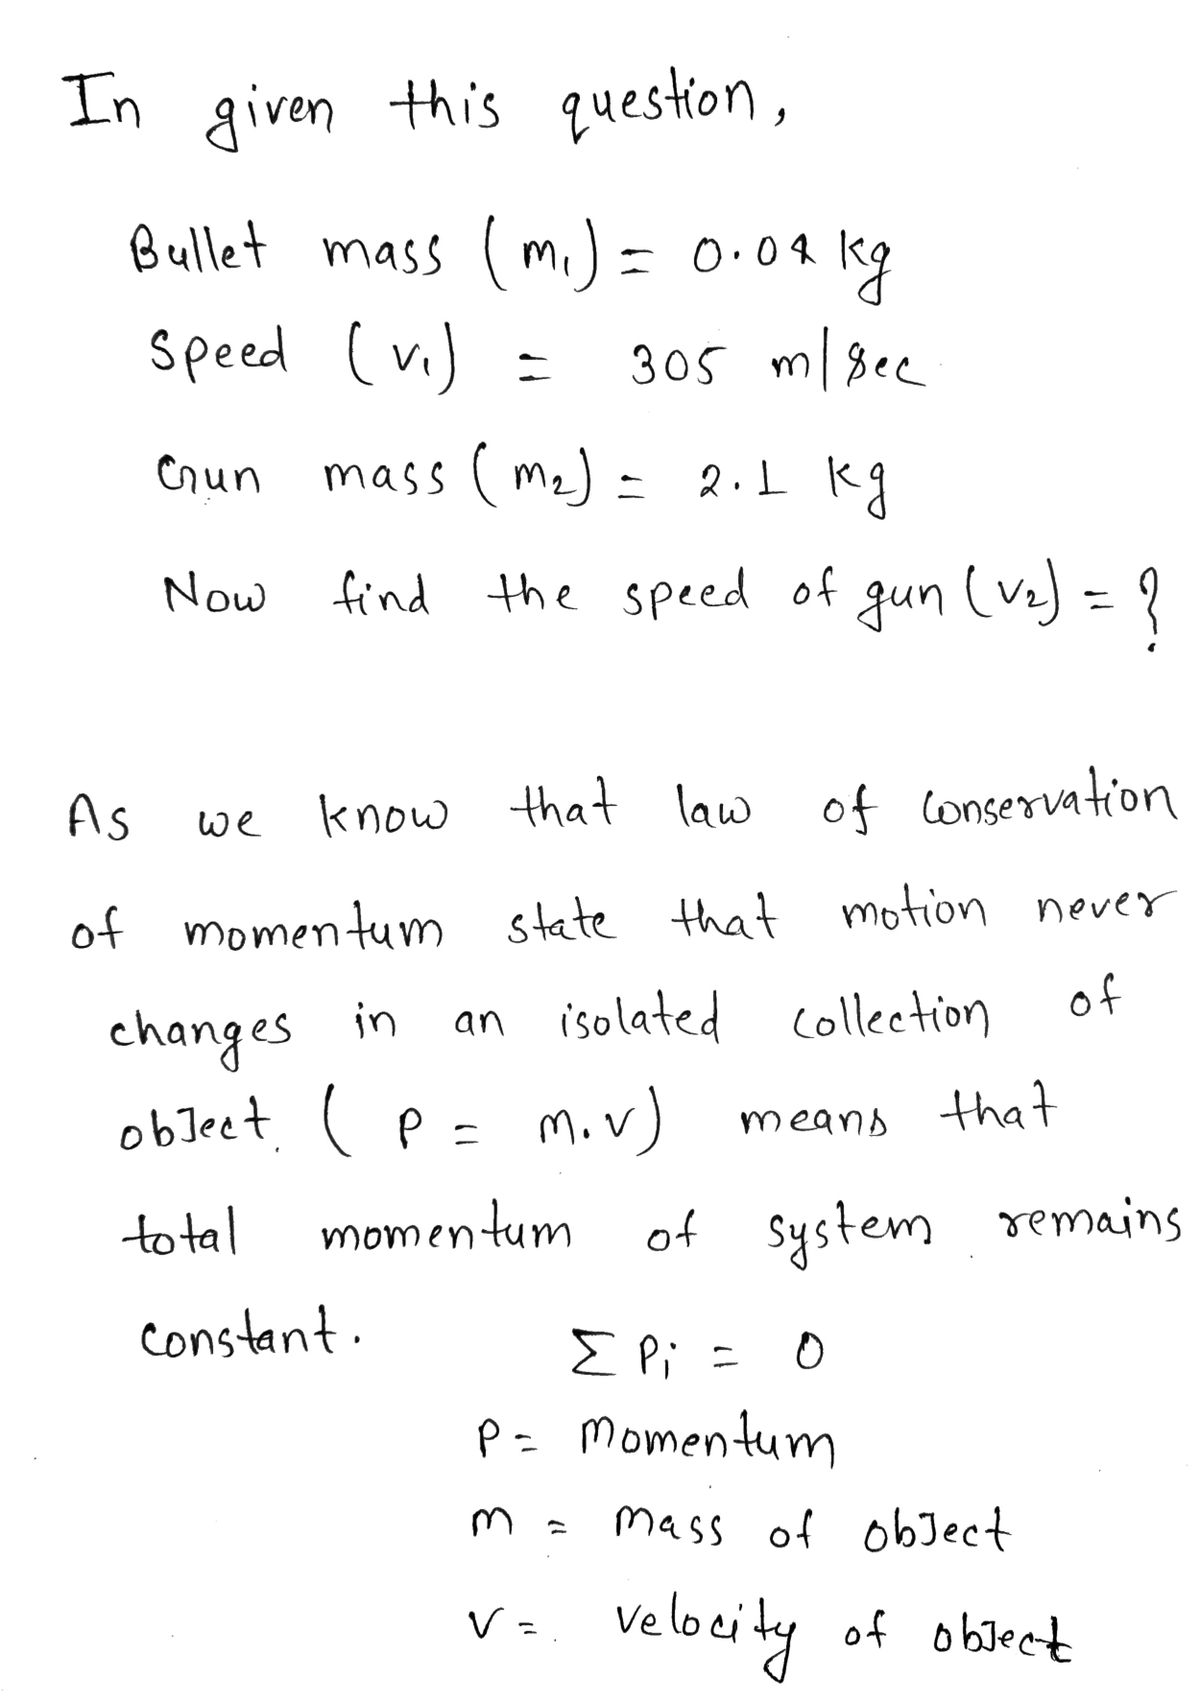 In given this question,
Bullet mass (m₁) = 0.04 kg
Speed (v₁) = 305 m/sec
Gun mass (m₂) = 2.1 kg
Now find the speed of gun (v₂) = ?
As we know that law of conservation
of momentum state that motion never
changes in an isolated collection of
obJect. ( P = m.v) means that
total momentum of system remains
constant.
Σ Pi = 0
P = Momentum
m = mass of obJect
v = velocity of obJect